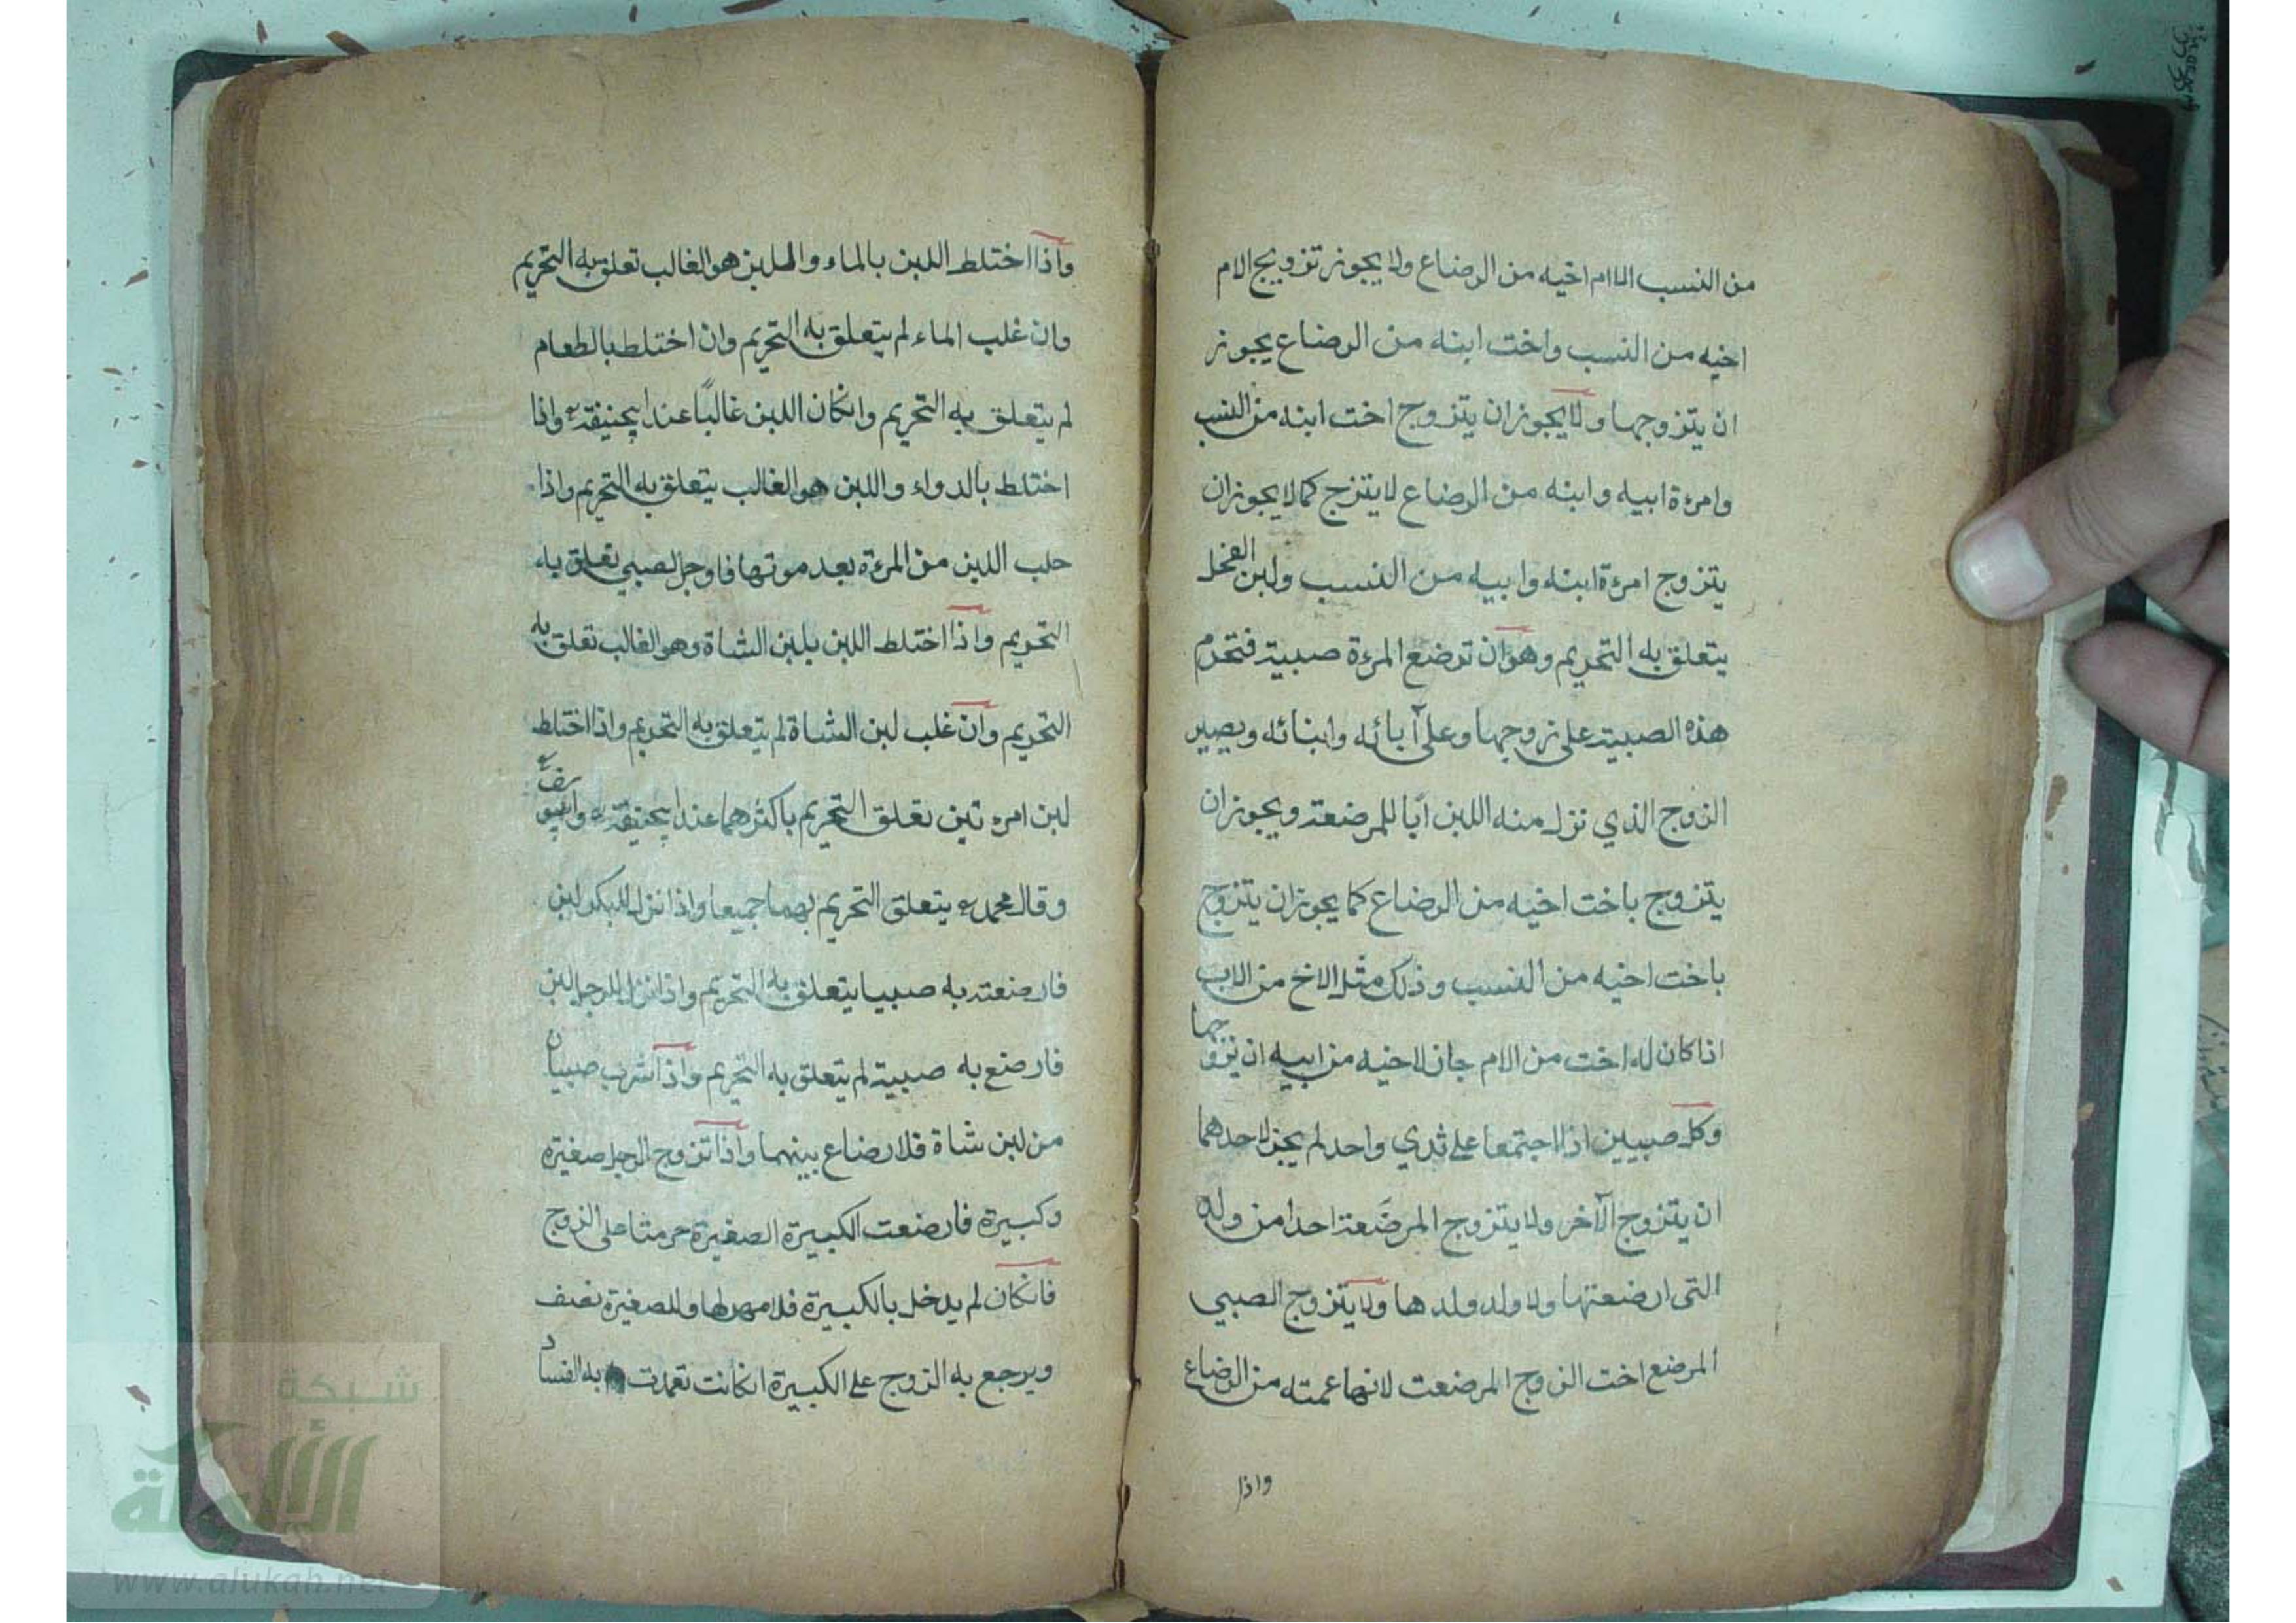 من النسب الا ام اخيه من الرضاع ولا يجوز تزويج الام
اخيه من النسب واخت ابنه من الرضاع يجوز
ان يتزوجها ولا يجوز ان يتزوج اخت ابنه من النسب
وامرءة ابيه وابنه من الرضاع لا يتزج كما لا يجوز ان
يتزوج امرءة ابنه وابيه من النسب ولبن الفحل
يتعلق به التحريم وهو ان ترضع المرءة صبية فتحرم
هذه الصبية على زوجها وعلى آبائه وابنائه ويصير
الزوج الذي نزل منه اللبن ابا للمرضعة ويجوز ان
يتزوج باخت اخيه من الرضاع كما يجوز ان يتزوج
باخت اخيه من النسب وذلك مثل الاخ من الاب
اذا كان له اخت من الام جاز لاخيه من ابيه ان يتزوجها
وكل صبيين اذا اجتمعا على ثدي واحد لم يجز لاحدهما
ان يتزوج الآخر ولا يتزوج المرضعة احدا من ولد
التى ارضعتها ولا ولد ولدها ولا يتزوج الصبي
المرضع اخت الزوج المرضعت لانها عمته من الرضاع
واذا
واذا اختلط اللبن بالماء واللبن هو الغالب تعلق به التحريم
وان غلب الماء لم يتعلق به التحريم وان اختلط بالطعام
لم يتعلق به التحريم وانكان اللبن غالبًا عند ابيحنيفة واذا
اختلط بالدواء واللبن هو الغالب يتعلق به التحريم واذا
حلب اللبن من المرءة بعد موتها فاوجر الصبي تعلق به
التحريم واذا اختلط اللبن بلبن الشاة وهو الغالب تعلق به
التحريم وان غلب لبن الشاة لم يتعلق به التحريم واذا اختلط
لبن امرءتين تعلق التحريم باكثرهما عند ابيحنيفة وابيوسف
وقال محمد يتعلق التحريم بهما جميعا واذا نزل للبكر لبن
فارضعته به صبيا يتعلق به التحريم واذا نزل للرجل لبن
فارضع به صبية لم يتعلق به التحريم واذا شرب صبيان
من لبن شاة فلا رضاع بينهما واذا تزوج الرجل صغيرة
وكبيرة فارضعت الكبيرة الصغيرة حرمتا على الزوج
فانكان لم يدخل بالكبيرة فلا مهر لها وللصغيرة نصف
ويرجع به الزوج على الكبيرة انكانت تعمدت به الفساد
شبكة
الألوكة
www.alukah.net